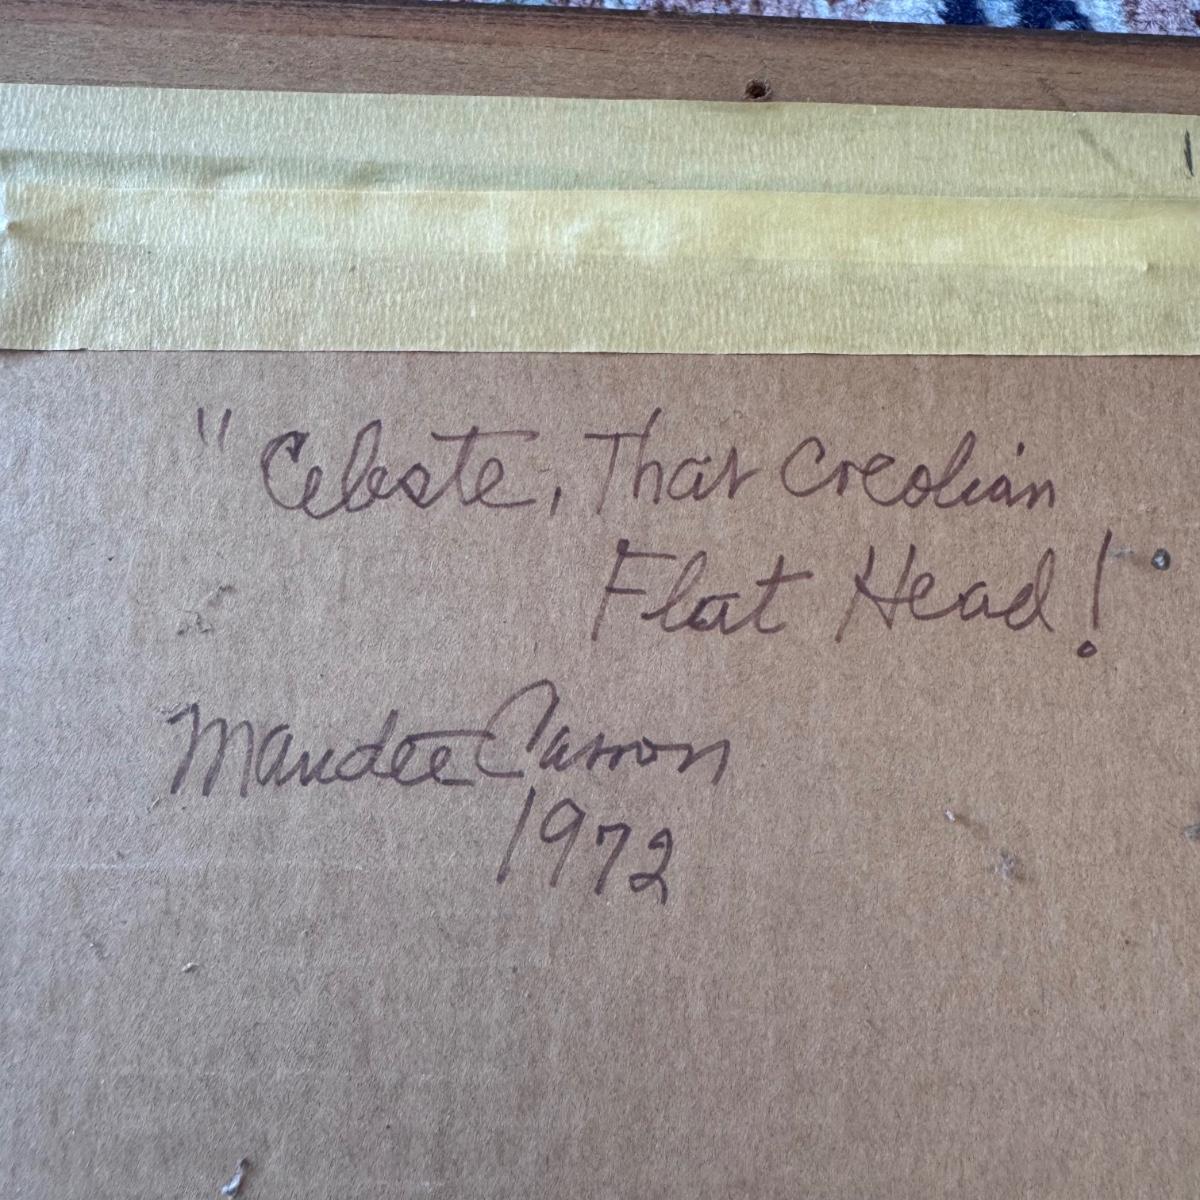 "Celeste, That Creolian
Flat Head!
Maudee Carron
1972